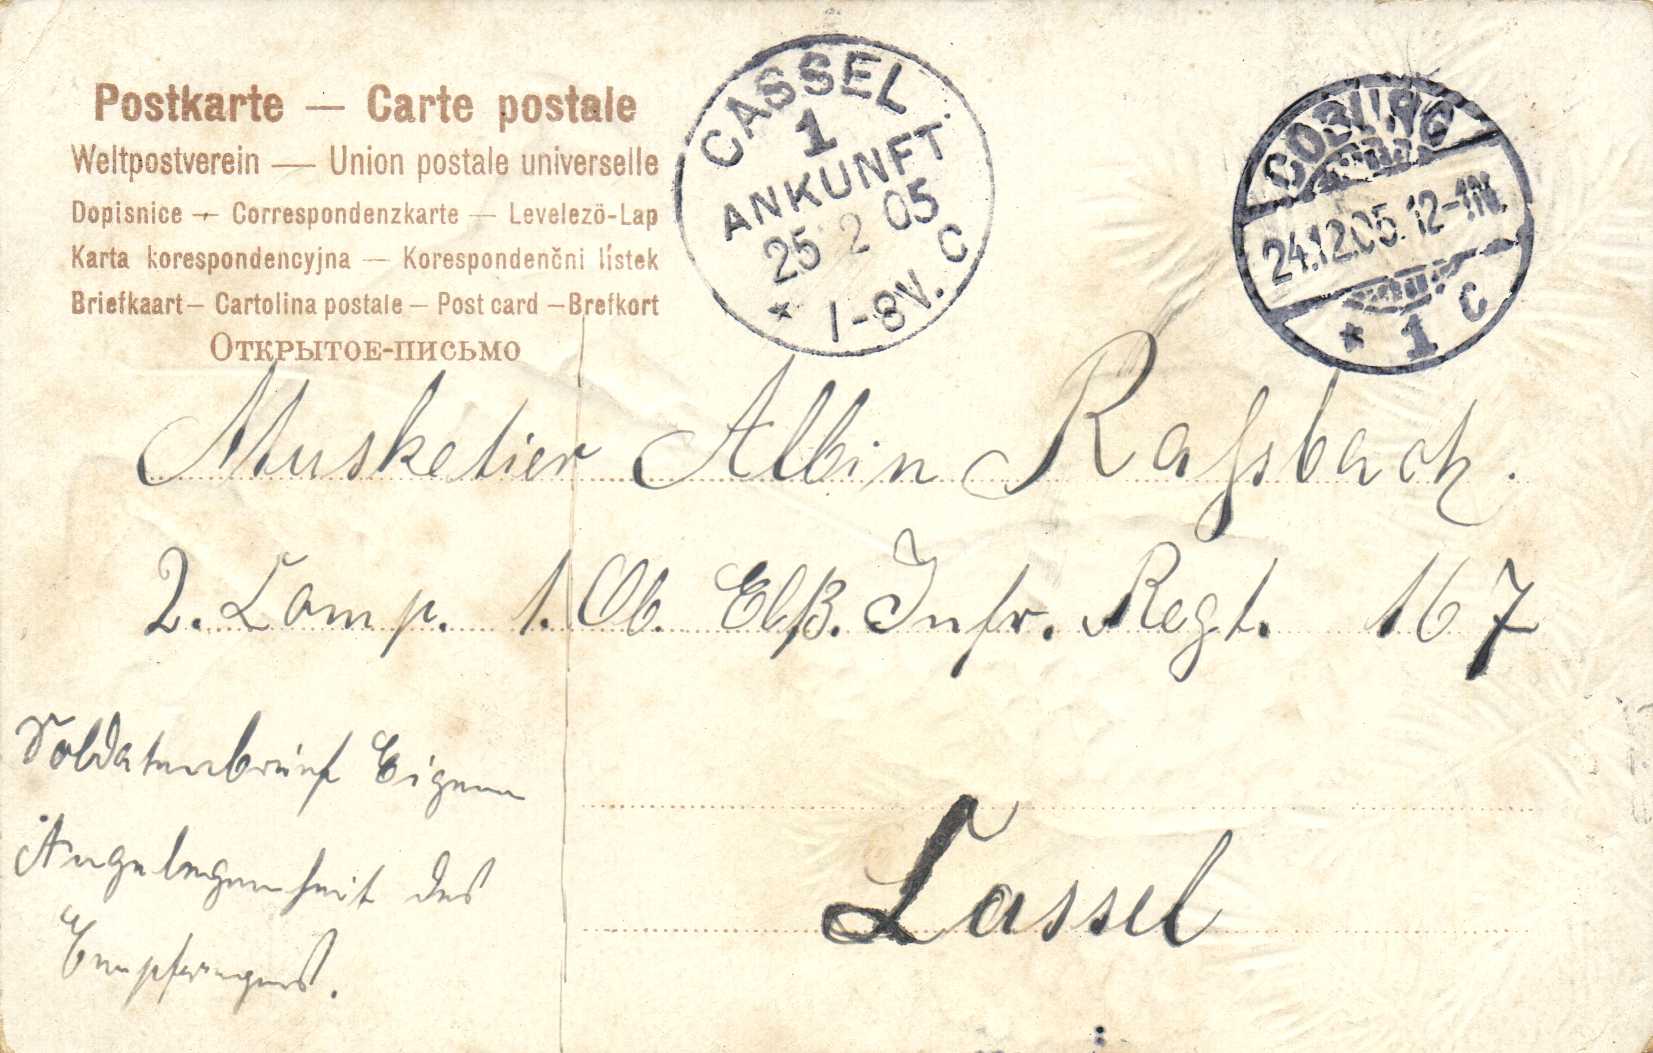 Postkarte — Carte postale
Weltpostverein — Union postale universelle
Dopisnice — Correspondenzkarte — Levelező-Lap
Karta korespondencyjna — Korespondenční lístek
Briefkaart — Cartolina postale — Post card — Brefkort
Открытое-письмо
CASSEL
1
ANKUNFT.
25 2 05
* 1-8V. C
COBURG
24.12.05. 12-1N.
* 1 C
Musketier Albin Raſsbach.
2. Comp. 1. Ob. Elß. Infr. Regt. 167
Soldatenbrief Eigene
Angelegenheit des
Empfängers.
Cassel